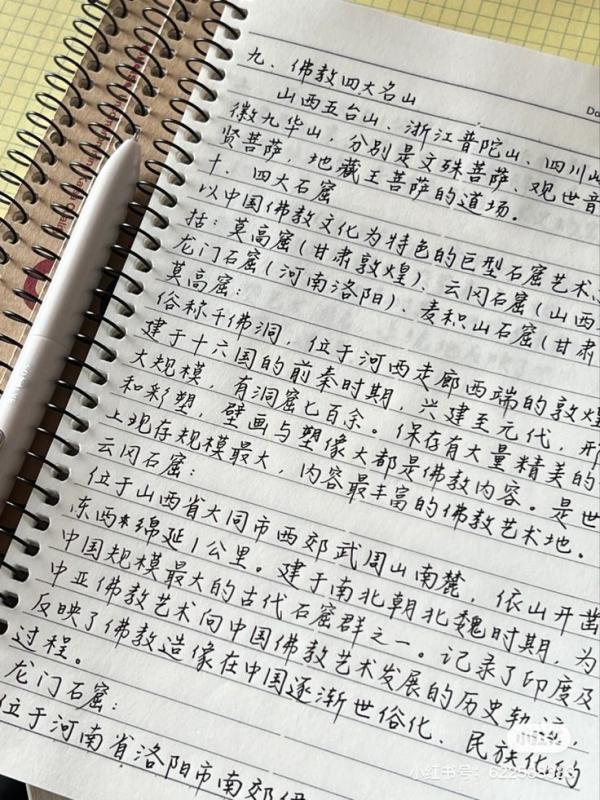 九、佛教四大名山
山西五台山、浙江普陀山、四川
徽九华山,分别是文殊菩萨、观世音
贤菩萨,地藏王菩萨的道场。
十、四大石窟
以中国佛教文化为特色的巨型石窟艺术
括:莫高窟(甘肃敦煌)、云冈石窟(山西
龙门石窟(河南洛阳)、麦积山石窟(甘肃
莫高窟:
俗称千佛洞,位于河西走廊西端的敦煌
建于十六国的前秦时期,兴建至元代,形
大规模,有洞窟七百余。保存有大量精美的
和彩塑,壁画与塑像大都是佛教内容。是世
上现存规模最大,内容最丰富的佛教艺术地。
云冈石窟:
位于山西省大同市西郊武周山南麓,依山开凿
东西绵延1公里。建于南北朝北魏时期,为
中国规模最大的古代石窟群之一。记录了印度及
中亚佛教艺术向中国佛教艺术发展的历史轨迹,
反映了佛教造像在中国逐渐世俗化、民族化的
过程。
龙门石窟:
位于河南省洛阳市南郊伊
小红书
小红书号: